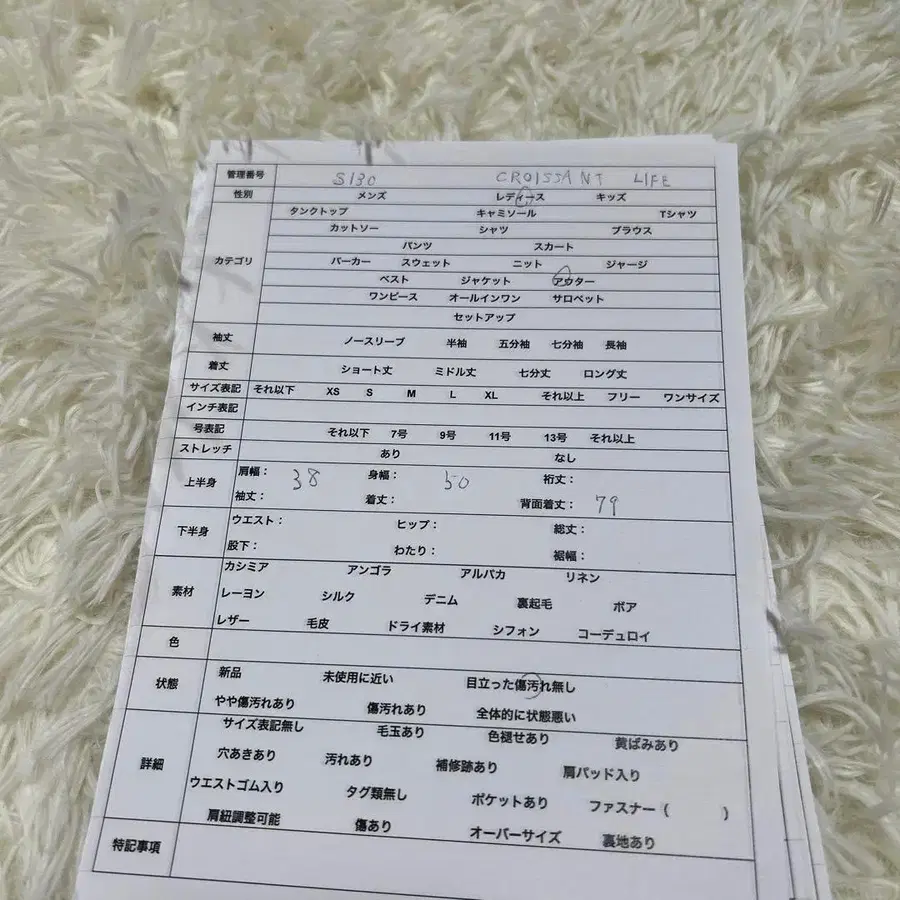 管理番号 S130 CROISSANT LIFE
性別 メンズ レディース キッズ
タンクトップ キャミソール Tシャツ
カットソー シャツ ブラウス
パンツ スカート
カテゴリ パーカー スウェット ニット ジャージ
ベスト ジャケット アウター
ワンピース オールインワン サロペット
セットアップ
袖丈 ノースリーブ 半袖 五分袖 七分袖 長袖
着丈 ショート丈 ミドル丈 七分丈 ロング丈
サイズ表記 それ以下 XS S M L XL それ以上 フリー ワンサイズ
インチ表記
号表記 それ以下 7号 9号 11号 13号 それ以上
ストレッチ あり なし
上半身 肩幅： 38 身幅： 50 裄丈：
袖丈： 着丈： 背面着丈： 79
下半身 ウエスト： ヒップ： 総丈：
股下： わたり： 裾幅：
カシミア アンゴラ アルパカ リネン
素材 レーヨン シルク デニム 裏起毛 ボア
レザー 毛皮 ドライ素材 シフォン コーデュロイ
色
状態 新品 未使用に近い 目立った傷汚れ無し
やや傷汚れあり 傷汚れあり 全体的に状態悪い
サイズ表記無し 毛玉あり 色褪せあり 黄ばみあり
詳細 穴あきあり 汚れあり 補修跡あり 肩パッド入り
ウエストゴム入り タグ類無し ポケットあり ファスナー（ ）
肩紐調整可能 傷あり オーバーサイズ 裏地あり
特記事項